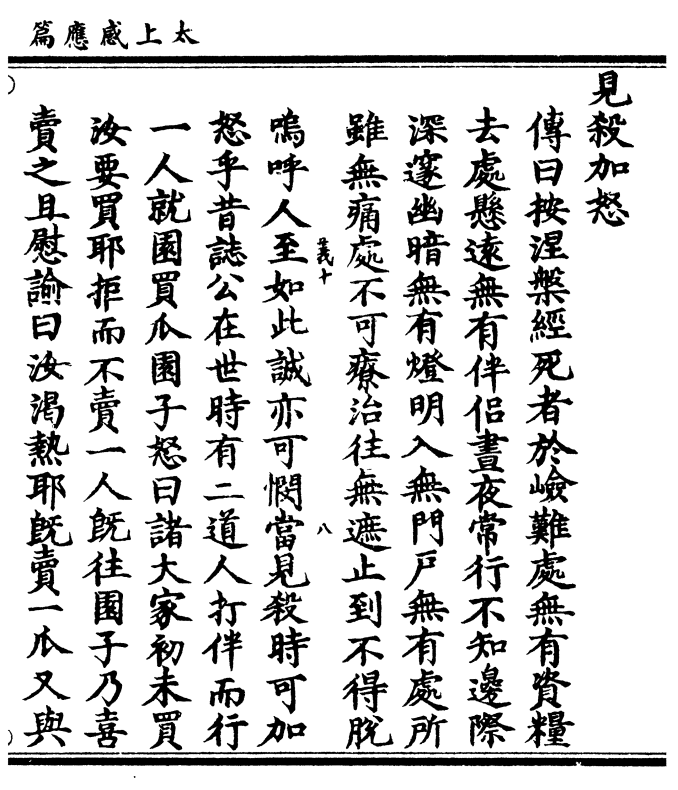 太上感應篇
見殺加怒
傳曰按涅槃經死者於嶮難處無有資糧
去處懸遠無有伴侶晝夜常行不知邊際
深邃幽暗無有燈明入無門戸無有處所
雖無痛處不可療治往無遮止到不得脫
義十
八
嗚呼人至如此誠亦可憫當見殺時可加
怒乎昔誌公在世時有二道人打伴而行
一人就園買瓜園子怒曰諸大家初未買
汝要買耶拒而不賣一人旣往園子乃喜
賣之且慰諭曰汝渴熱耶旣賣一瓜又與